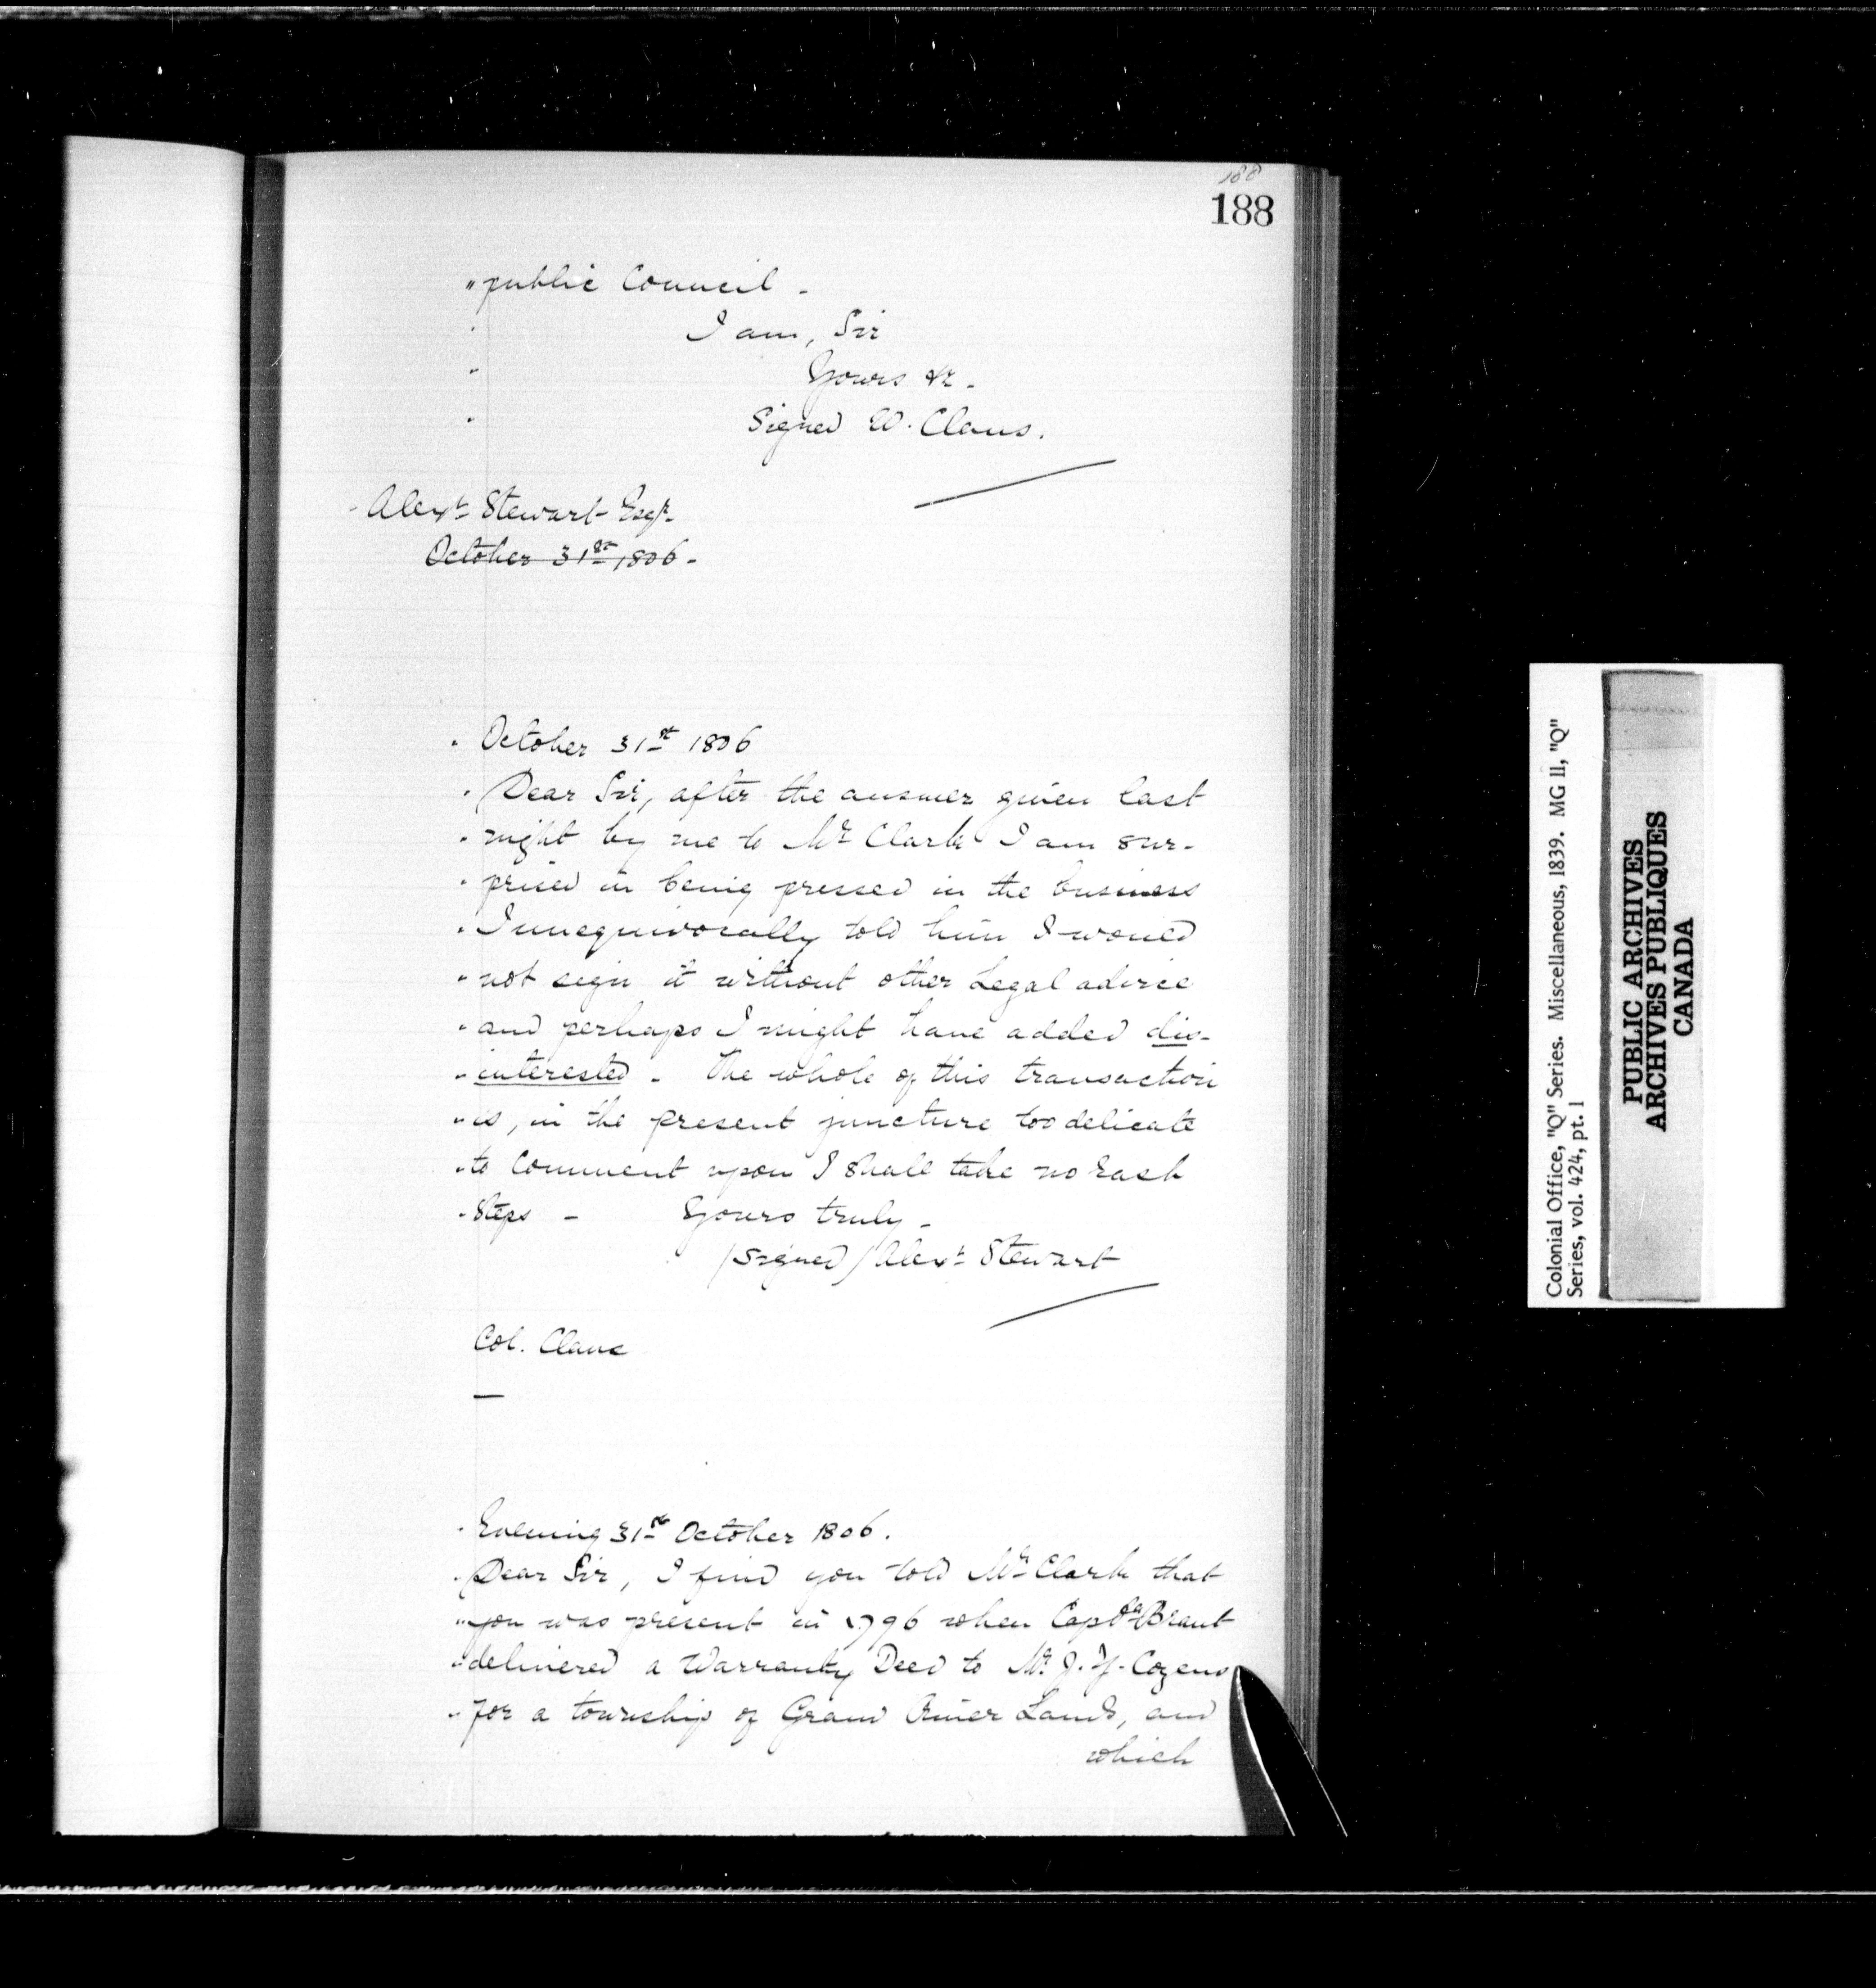 188
188
" public Council -
" I am, Sir
" Yours &c -
" Signed W. Claus.
" Alexr Stewart Esqr.
October 31st 1806 -
" October 31st 1806
" Dear Sir, after the answer given last
" night by me to Mr Clark I am sur-
" prised in being pressed in the business
" I unequivocally told him I would
" not sign it without other Legal advice
" and perhaps I might have added dis-
" interested - The whole of this transaction
" is, in the present juncture too delicate
" to Comment upon I shall take no rash
" Steps - Yours truly -
(signed) Alexr Stewart
Col. Claus
" Evening 31st October 1806.
" Dear Sir, I find you told Mr Clark that
" you was present in 1796 when Captn Brant
" delivered a Warranty Deed to Mr J. Y. Cozens
" for a township of Grand River Lands, and
which
Colonial Office, "Q" Series. Miscellaneous, 1839. MG 11, "Q"
Series, vol. 424, pt. 1
PUBLIC ARCHIVES
ARCHIVES PUBLIQUES
CANADA